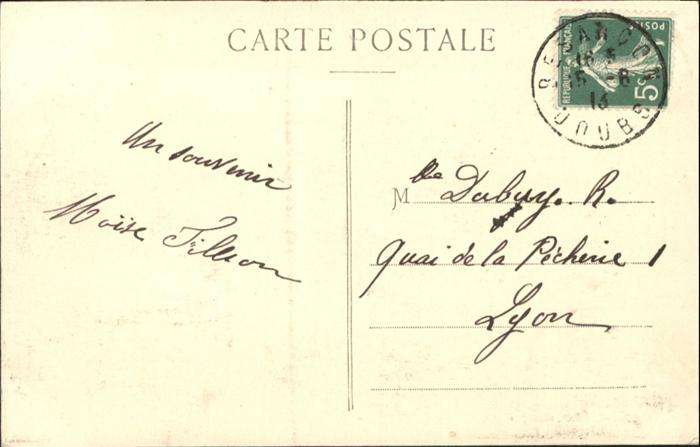 CARTE POSTALE
REPUBLIQUE FRANCAISE
POSTES
5c
BESANCON
16 5
15 -8
13
DOUBS
Un souvenir
Moïse Tillion
Mlle Dubuy. R.
Quai de la Pêcherie 1
Lyon